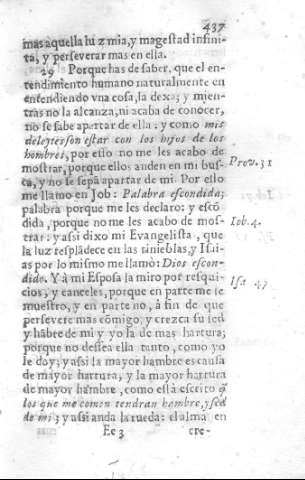 437
mas aquella luz mia, y magestad infini-
ta, y perseverar mas en ella.
29 Porque has de saber, que el en-
tendimiento humano naturalmente en
entendiendo vna cosa, la dexa; y mien-
tras no la alcança, ni acaba de conocer,
no se sabe apartar de ella: y como mis
deleytes son estar con los hijos de los
hombres, por esso no me les acabo de
mostrar, porque ellos anden en mi bus-
ca, y no se sepã apartar de mi. Por esso
me llamo en Job: Palabra escondida;
palabra porque me les declaro: y escõ
dida, porque no me les acabo de mos-
trar: y assi dixo mi Evangelista, que
la luz resplãdece en las tinieblas, y Isai-
as por lo mismo me llamò: Dios escon-
dido. Y à mi Esposa la miro por resqui-
cios, y canceles, porque en parte me le
muestro, y en parte no, à fin de que
persevere mas cõmigo, y crezca su sed
y hãbre de mi y yo la dè mas hartura;
porque no dessea ella tanto, como yo
le doy; y assi la mayor hambre es causa
de mayor hartura, y la mayor hartura
de mayor hambre, como està escrito q̃
los que me comen tendran hambre, y sed
de mi; y assi anda la rueda: el alma en
Ee 3 cre-
Prov. 31
Iob. 4.
Isa 47